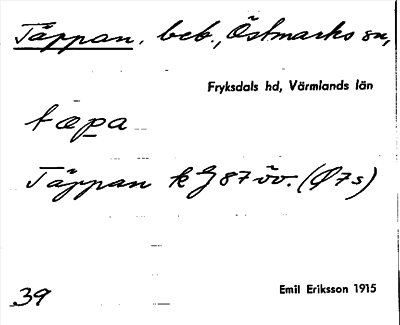 Täppan. beb., Östmarks sn,
Fryksdals hd, Värmlands län
tæpa
Täppan k G 87 öv. (Ø7s)
39
Emil Eriksson 1915